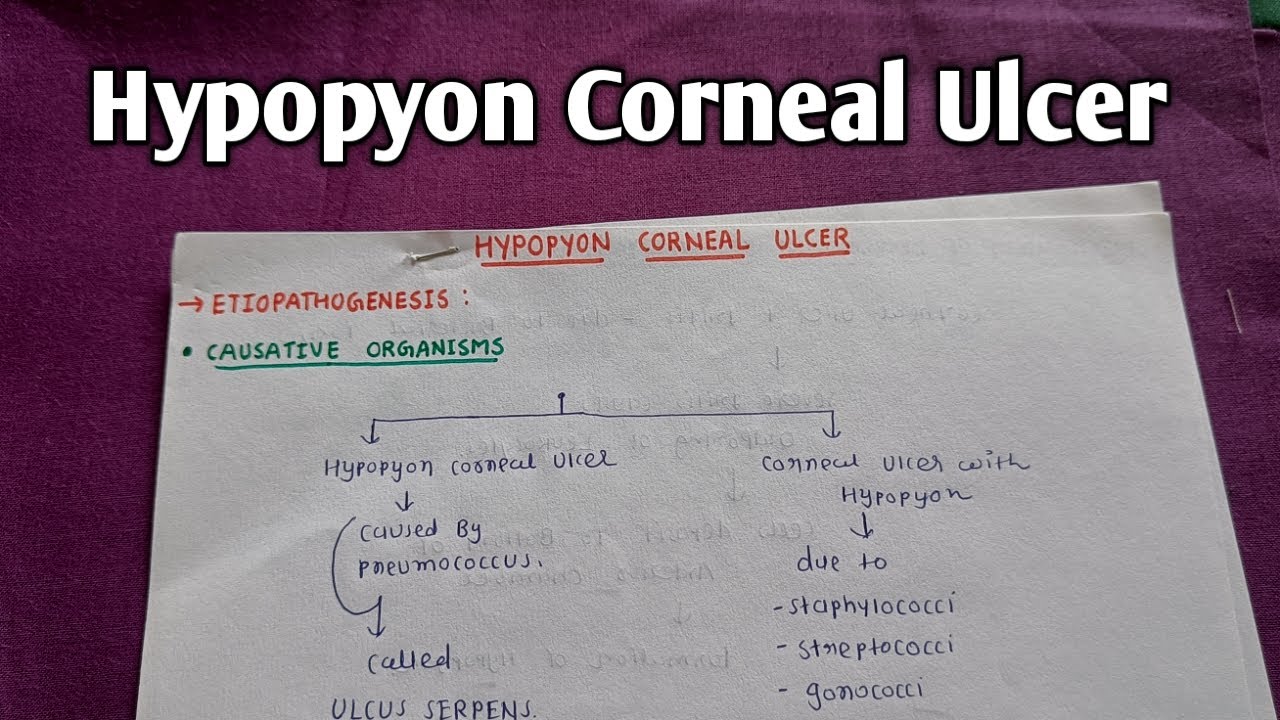 Hypopyon Corneal Ulcer
HYPOPYON CORNEAL ULCER
→ ETIOPATHOGENESIS :
• CAUSATIVE ORGANISMS
Hypopyon corneal ulcer
caused By
pneumococcus.
called
ULCUS SERPENS.
corneal ulcer with
Hypopyon
due to
- staphylococci
- streptococci
- gonococci